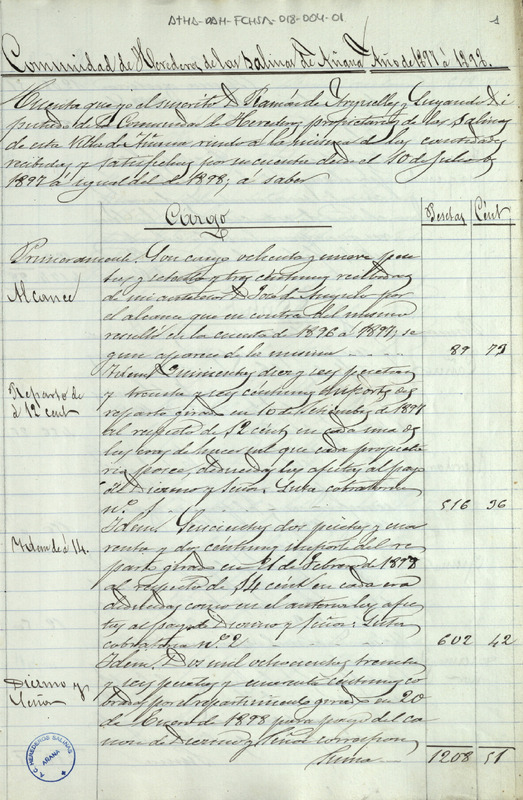 ATHA-DAH-FCHSA-018-004-01
1
Comunidad de Herederos de las Salinas de Añana Año de 1897 á 1898.
Cuenta que yo el suscrito D. Ramón de
putado de la Comunidad de Herederos propietarios de las Salinas
de esta Villa de Añana rindo á la misma de las cantidades
recibidas y satisfechas por su cuenta desde el 10 de Julio de
1897 á igual del de 1898; á saber
Cargo
Pesetas Cént
Primeramente. Son cargo ochenta y nueve pese
tas y setenta y tres céntimos recibidos
Alcance
de mi antecesor D. José Angulo por
el alcance que en contra del mismo
resultó en la cuenta de 1896 á 1897, se
gun aparece de la misma 89 73
Idem. Quinientas diez y seis pesetas
Reparto de
á 12 cent
y treinta y seis céntimos importe del
reparto girado en 10 de Setiembre de 1897
al respecto de 12 cént en cada una de
las eras de hacer sal que cada propieta
rio posee, deducidas las afectas al pago
del Diezmo y Señor. Lista cobratoria
nº 1 516 36
Idem. Seiscientas dos pesetas y cua
Idem de á 14.
renta y dos céntimos importe del re
parto girado en 21 de Febrero de 1898
al respecto de 14 cént en cada era
deducidas como en el anterior las afec
tas al pago de Diezmo y Señor: Lista
cobratoria nº 2 602 42
Idem. Dos mil ochocientas treinta
Diezmo y
Señor
y seis pesetas y cuarenta céntimos co
brados por el repartimiento girado en 20
de Enero de 1898 para pago del ca
non de Diezmo y Señor correspon
Suma 1208 51
C. HEREDEROS SALINAS
AÑANA